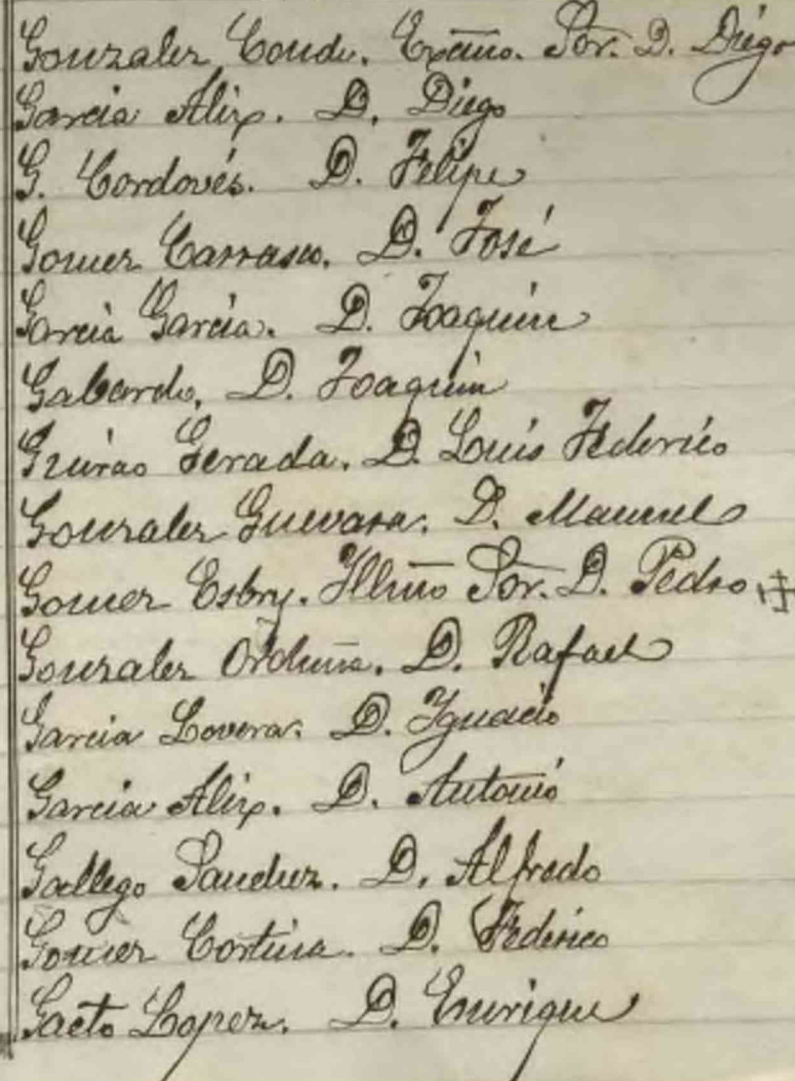 Gonzalez Conde. Excmo. Sor. D. Diego
Garcia Alix. D. Diego
G. Cordovés. D. Felipe
Gomez Carrasco. D. José
Garcia Garcia. D. Joaquin
Galcardo, D. Joaquin
Guirao Gerada. D. Luis Federico
Gonzalez Guevara. D. Manuel
Gomez Esbry. Illmo Sor. D. Pedro
Gonzalez Orduña. D. Rafael
Garcia Lovera. D. Ignacio
Garcia Alix. D. Antonio
Gallego Sanchez. D. Alfredo
Gomez Cortina. D. Federico
Gaeto Lopez. D. Enrique